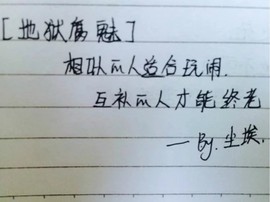 [地狱腐魅]
相似的人适合玩闹.
互补的人才能终老
—By.尘埃.